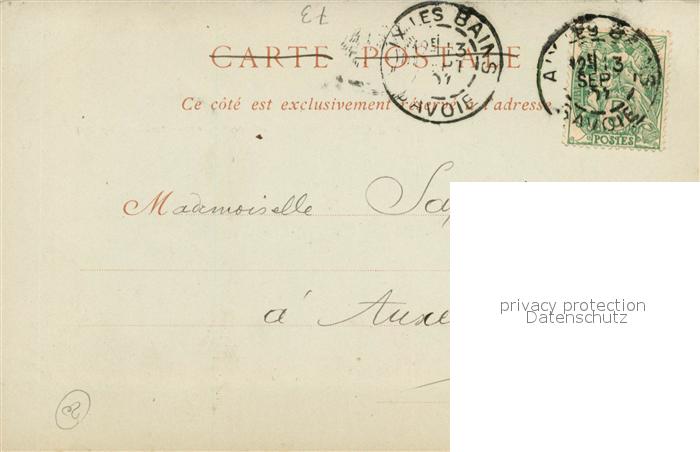 73
CARTE POSTALE
Ce côté est exclusivement réservé à l'adresse
AIX LES BAINS
13
SAVOIE
AIX LES BAINS
13
SEP
SAVOIE
POSTES
Mademoiselle
à Auxe
privacy protection
Datenschutz